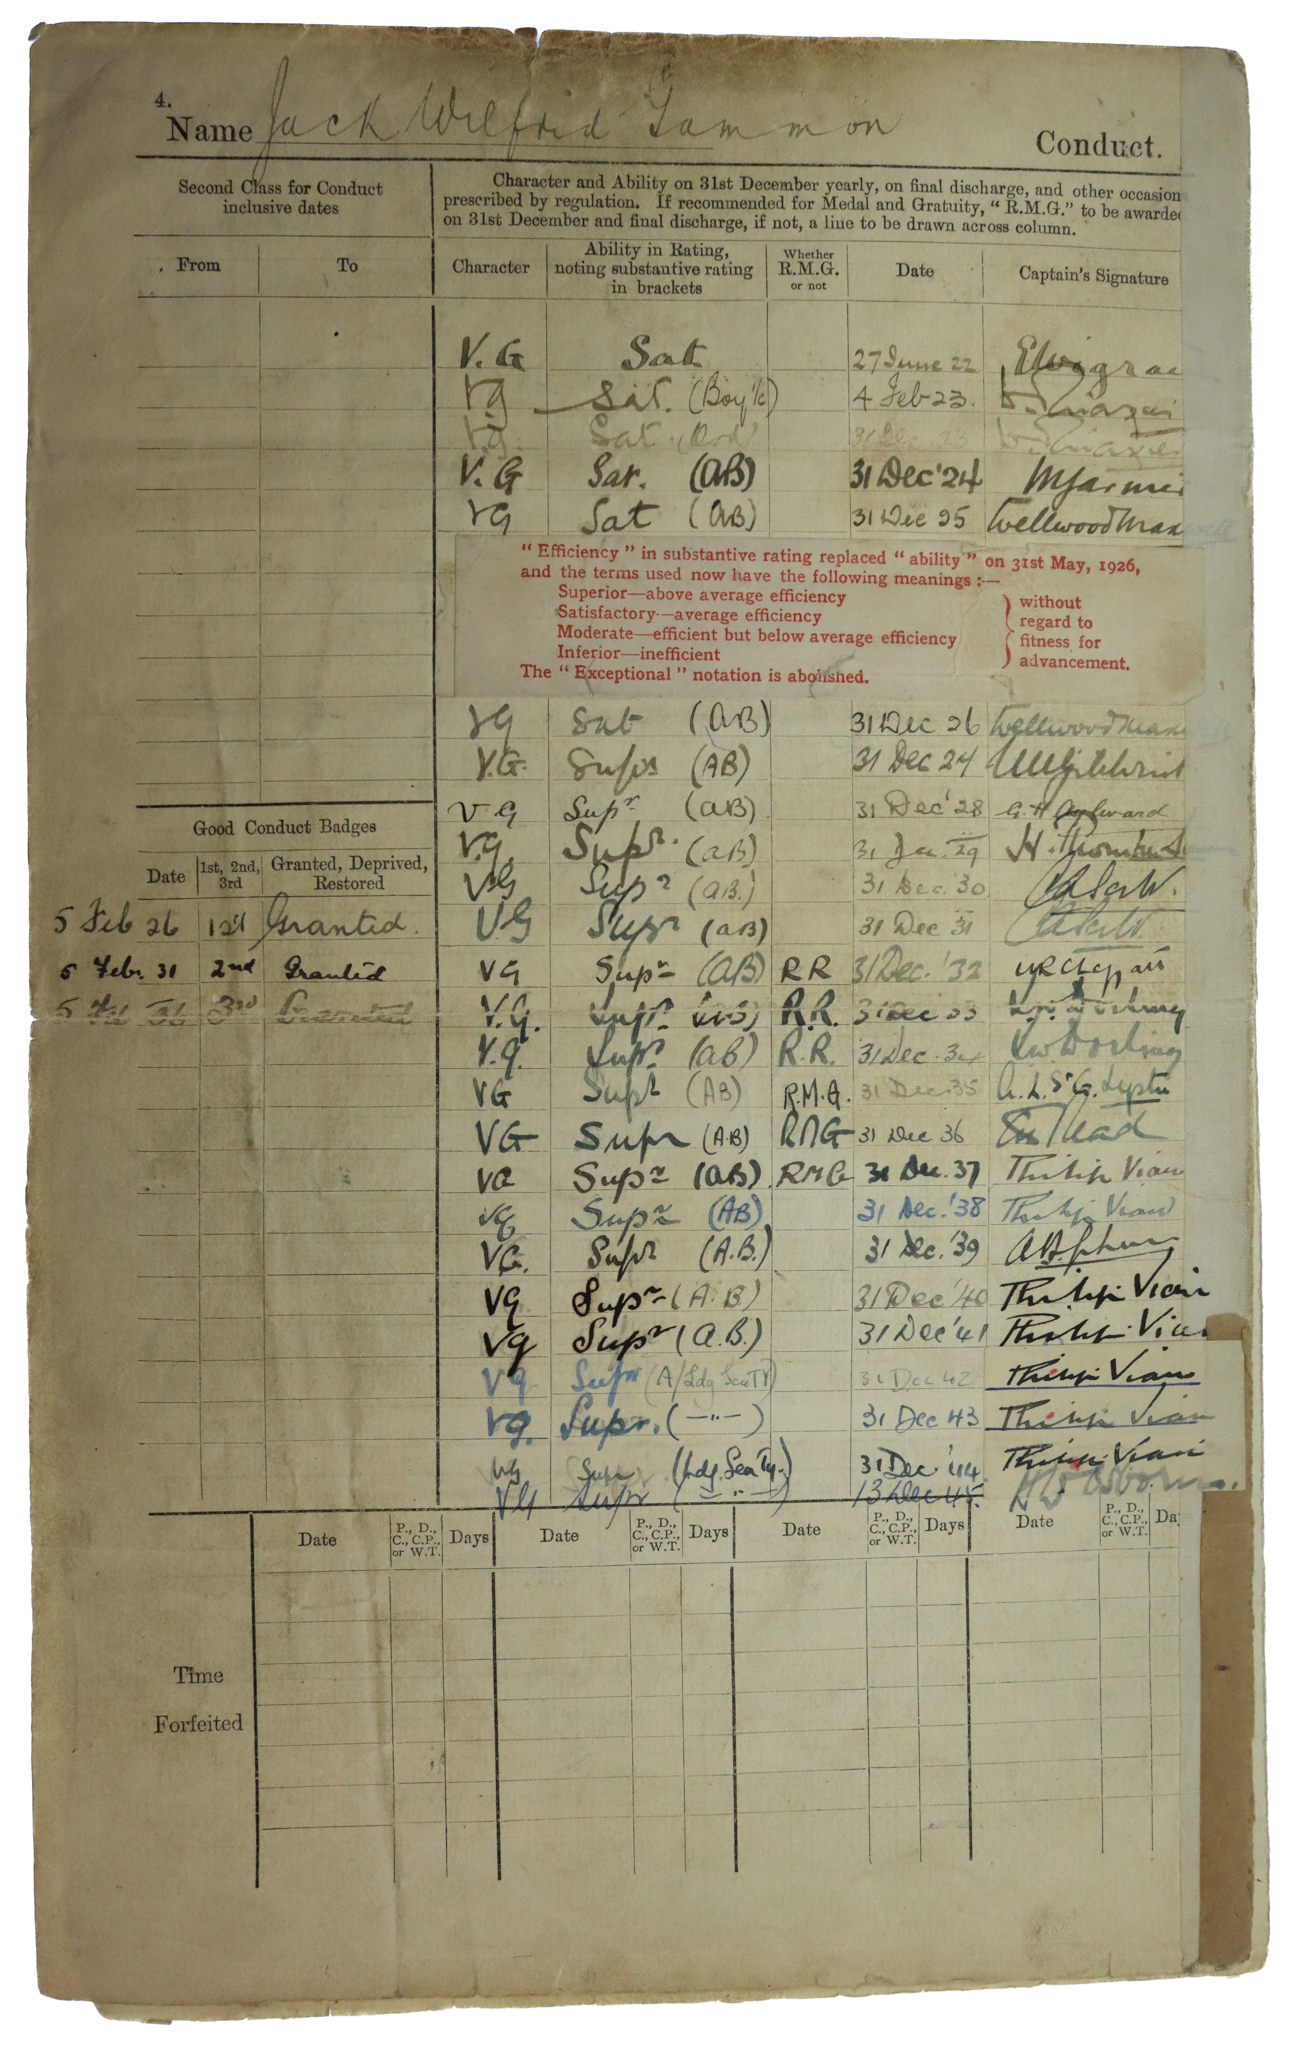 4.
Name Jack Wilfrid Conduct.
Second Class for Conduct
inclusive dates
Character and Ability on 31st December yearly, on final discharge, and other occasion
prescribed by regulation. If recommended for Medal and Gratuity, "R.M.G." to be awarded
on 31st December and final discharge, if not, a line to be drawn across column.
From To
Character
Ability in Rating,
noting substantive rating
in brackets
Whether
R.M.G.
or not
Date
Captain's Signature
V.G Sat 27 June 22
VG Sat. (Boy 1c) 4 Feb 23.
V.G. Sat. (Ord) 31 Dec 23
V.G Sat. (AB) 31 Dec '24
VG Sat (AB) 31 Dec 25 Wellwood Max
"Efficiency" in substantive rating replaced "ability" on 31st May, 1926,
and the terms used now have the following meanings :—
Superior—above average efficiency
Satisfactory—average efficiency
Moderate—efficient but below average efficiency
Inferior—inefficient
without
regard to
fitness for
advancement.
The "Exceptional" notation is abolished.
VG Sat (AB) 31 Dec 26 Wellwood Max
V.G. Supr (AB) 31 Dec 27
VG Supr (AB) 31 Dec '28
V.G. Supr. (AB) 29 H.
VG Supr (AB.) 31 Dec. 30
VG Supr (AB) 31 Dec 31
VG Supr (AB) RR 31 Dec. '32
V.G. Supr (AB) R.R. 31 Dec 33
V.G. Supr (AB) R.R. 31 Dec. 34
VG Supr (AB) R.M.G. 31 Dec. 35
VG Supr (A.B) RMG 31 Dec 36
VG Supr (AB) RMG 31 Dec. 37 Philip Vian
VG Supr (AB) 31 Dec. '38 Philip Vian
VG. Supr (A.B.) 31 Dec. '39
VG Supr (A.B.) 31 Dec '40 Philip Vian
VG Supr (A.B.) 31 Dec '41 Philip Vian
VG Supr (A/Ldg Sea Ty) 31 Dec 42 Philip Vian
VG. Supr. (—"—) 31 Dec 43 Philip Vian
VG Supr (Ldg. Sea Ty.) 31 Dec. '44 Philip Vian
VG Supr (— " —) 13 Dec 45. Osborn
Good Conduct Badges
Date
1st, 2nd,
3rd
Granted, Deprived,
Restored
5 Feb 26 1st Granted.
5 Feb. 31 2nd Granted
5 Feb 36 3rd Granted
Date P., D., C., C.P., or W.T. Days Date P., D., C., C.P., or W.T. Days Date P., D., C., C.P., or W.T. Days Date P., D., C., C.P., or W.T. Da
Time
Forfeited